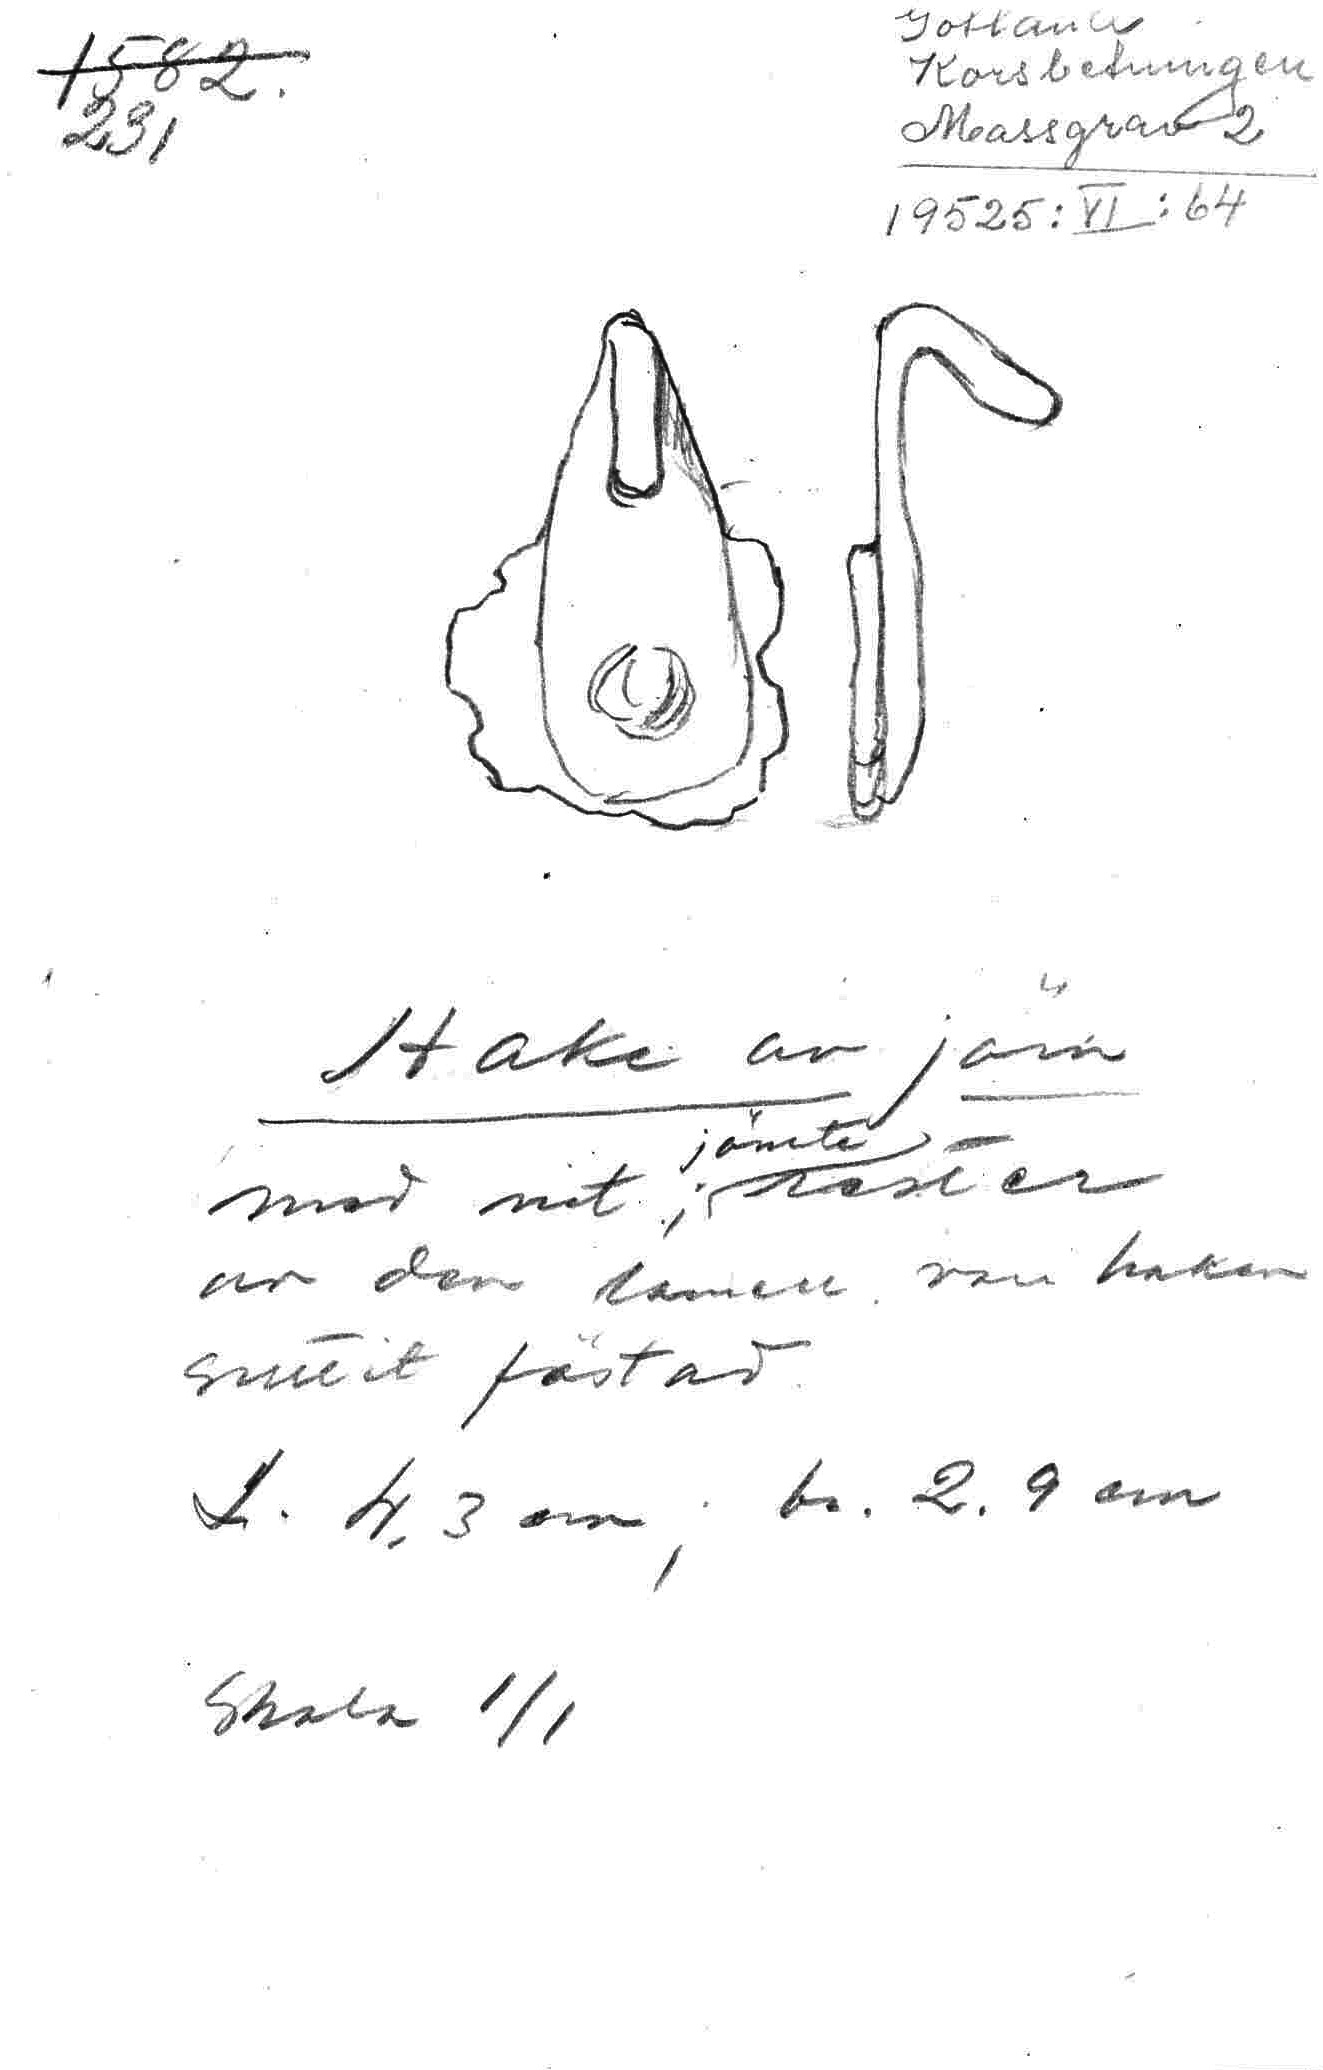 1582.
231
Gotland
Korsbetningen
Massgrav 2
19525:VI:64
Hake av järn
med nit, jämte rester
av den lamell, vari haken
suttit fästad.
L. 4,3 cm, br. 2.9 cm
Skala 1/1